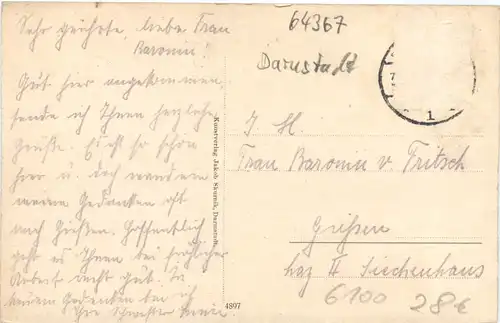 Sehr geehrte, liebe Frau
Baronin!
Gut hier angekommen,
sende ich Ihnen herzliche
Grüße. Es ist so schön
hier u. doch wandern
meine Gedanken oft
nach Gießen. Hoffentlich
geht es Ihnen bei fröhlicher
Arbeit recht gut. In
meinen Gedanken bin ich
Ihre Schwester
Kunstverlag Jakob Skurnik, Darmstadt.
4897
64367
Darmstadt
1
I. H.
Frau Baronin v. Fritsch
Gießen
Laz II Siechenhaus
6100
28€